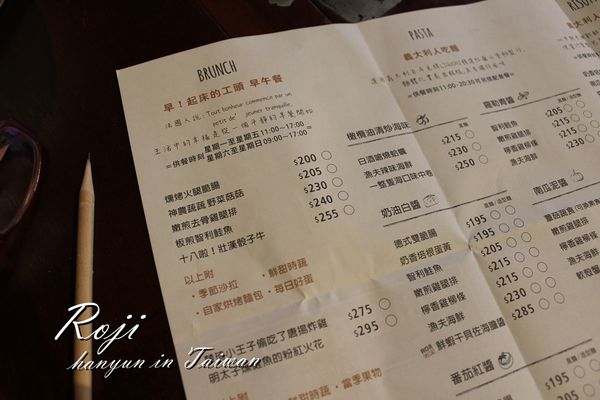 BRUNCH
早！起床的工頭 早午餐
法國人說：Tout bonheur commence par un
petit de' jeuner tranquille,
生活中的幸福是從一個平靜的早餐開始
=供餐時刻 星期一至星期五11:00~17:00
星期六至星期日09:00~17:00=
燻烤火腿脆腸 $200
神農蔬蔬野菜菇菇 $205
嫩煎去骨雞腿排 $230
板煎智利鮭魚 $240
十八啦！壯漢骰子牛 $255
以上附
・季節沙拉 ・鮮甜時蔬
・自家烘烤麵包 ・每日好蛋
小王子偷吃了唐揚炸雞 $275
明太子 魚的粉紅火花 $295
鮮甜時蔬 ・當季果物
PASTA
義大利人吃麵
=供餐時刻11:00~20:30可另搭配套餐=
橄欖油清炒海味
白酒嫩燒蛤蠣 $215
漁夫辣味海鮮 $230
一整隻海口味中卷 $250
奶油白醬
德式雙脆腸 $195
奶香培根蛋黃 $195
智利鮭魚 $215
嫩煎雞腿排 $215
檸香雞柳條 $215
漁夫海鮮 $230
鮮蝦干貝佐海膽醬 $285
番茄紅醬
羅勒青醬
智利鮭魚
嫩煎雞腿排
檸香雞柳條
漁夫海鮮
南瓜泥醬
嫩煎雞腿排
檸香雞柳條
漁夫海鮮
RISOTTO
Roji
hanyun in Taiwan